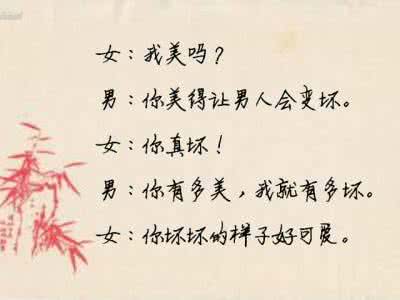 女：我美吗？
男：你美得让男人会变坏。
女：你真坏！
男：你有多美，我就有多坏。
女：你坏坏的样子好可爱。